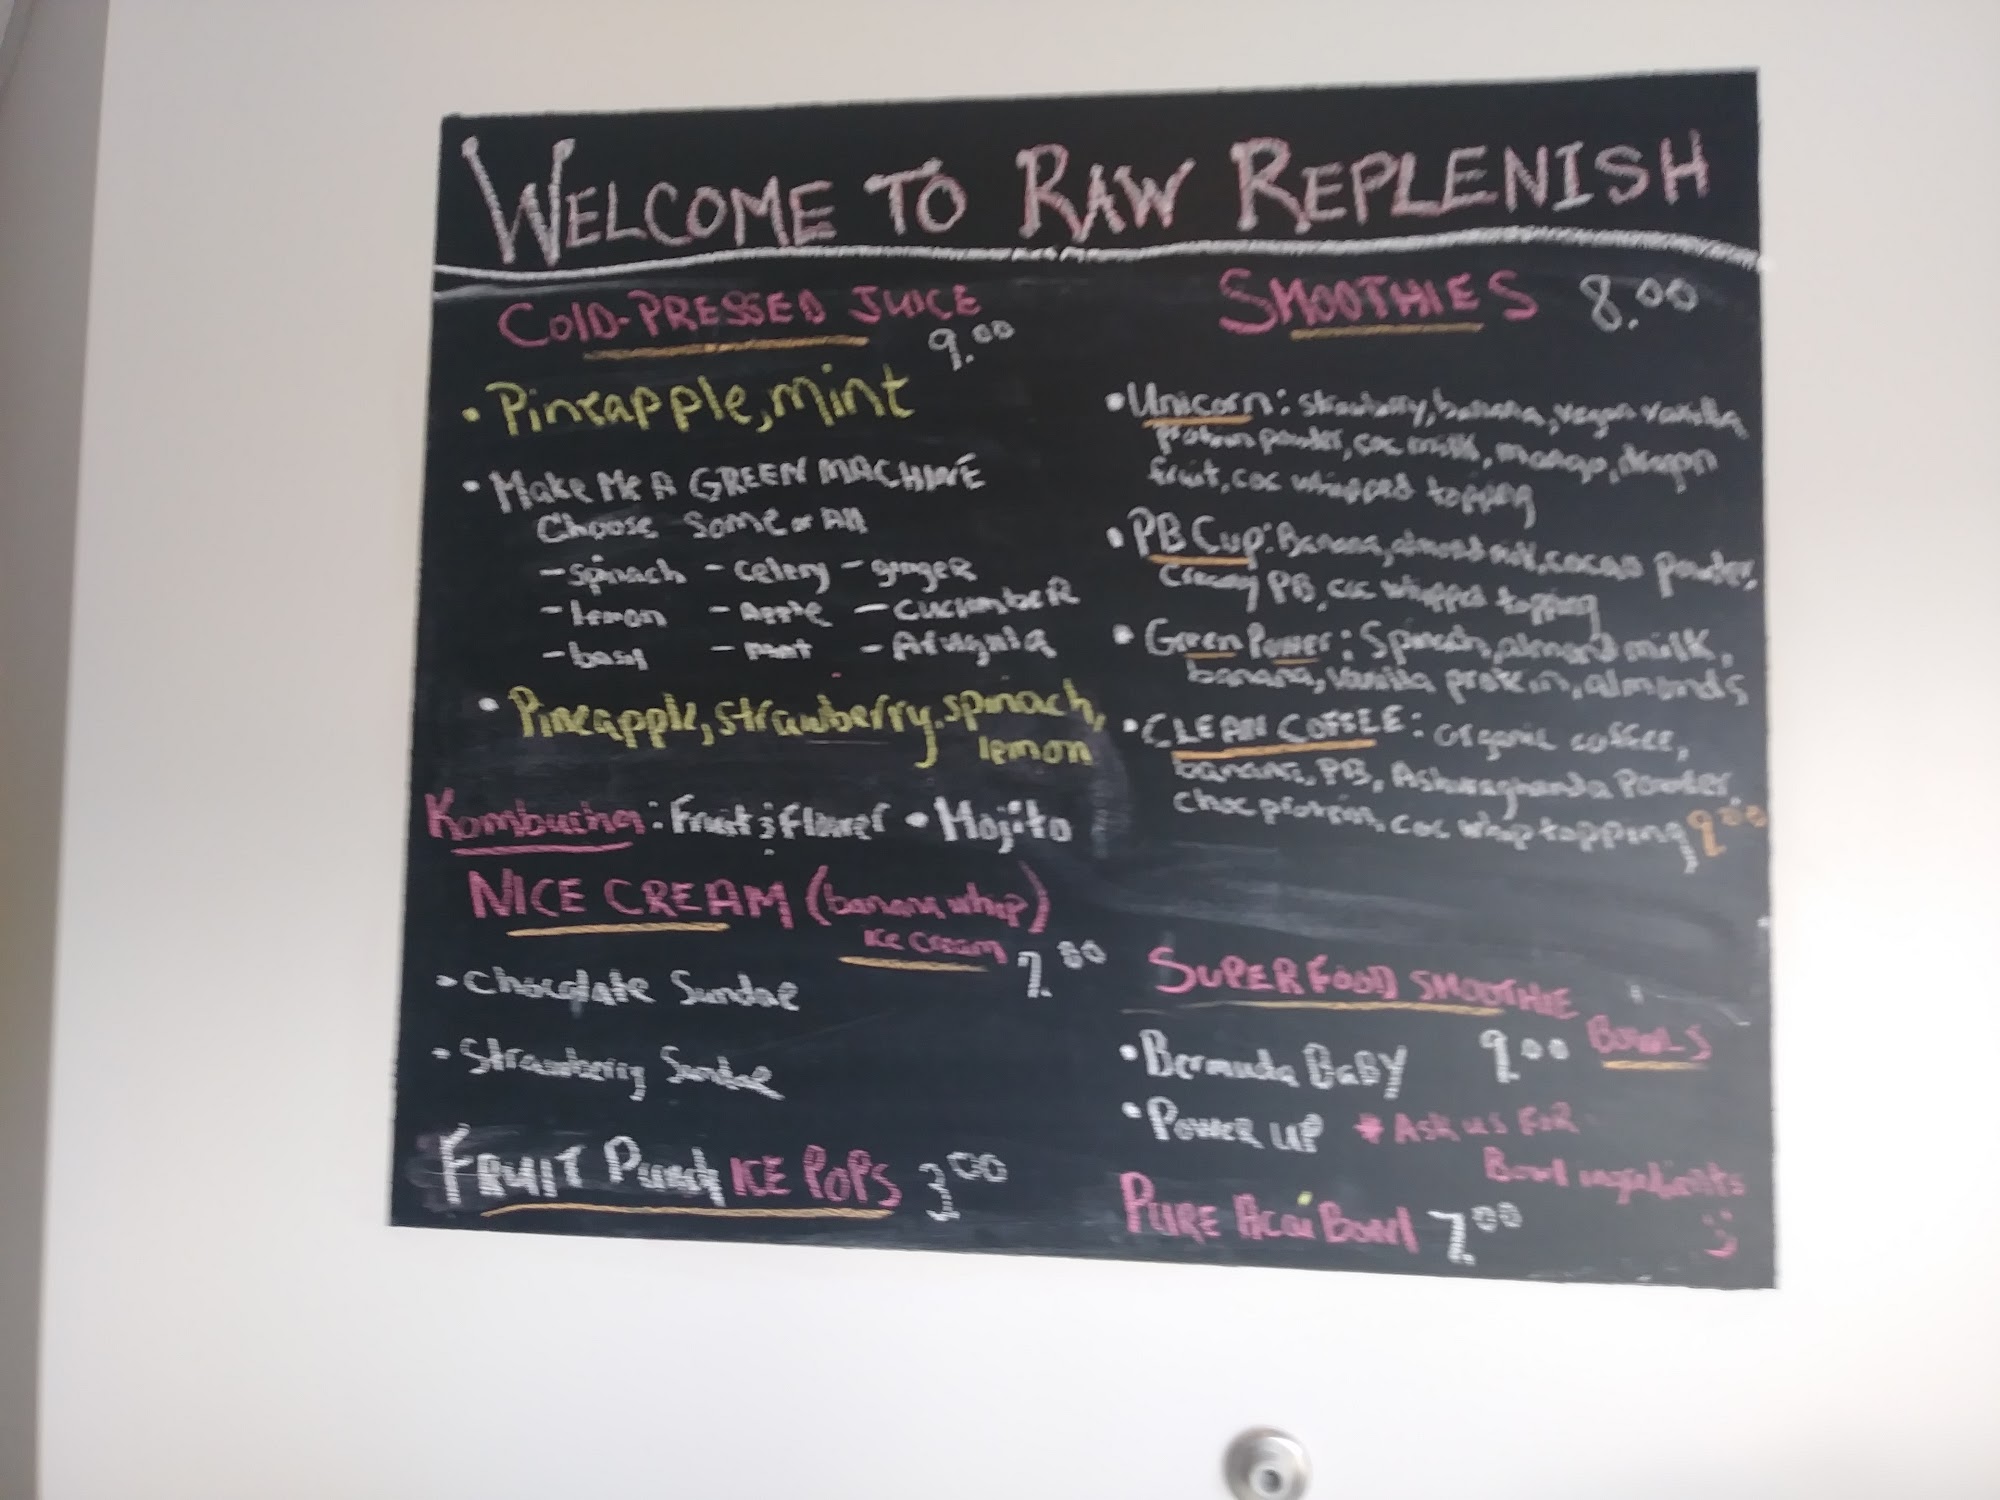 WELCOME TO RAW REPLENISH
COLD-PRESSED JUICE
9.00
• Pineapple, mint
• Make Me A GREEN MACHINE
Choose Some or All
- spinach - celery - ginger
- lemon - Apple - cucumber
- basil - mint - Arugula
• Pineapple, strawberry, spinach,
lemon
Kombucha: Fruit & Flower • Mojito
NICE CREAM (banana whip)
ice cream 7.00
• Chocolate Sundae
• Strawberry Sundae
FRUIT Punch ICE POPS 3.00
SMOOTHIES 8.00
• Unicorn: strawberry, banana, vegan vanilla
protein powder, coc milk, mango, dragon
fruit, coc whipped topping
• PB Cup: Banana, almond milk, cacao powder,
creamy PB, coc whipped topping
• Green Power: Spinach, almond milk,
banana, vanilla protein, almonds
• CLEAN COFFEE: organic coffee,
banana, PB, Ashwaghanda Powder,
choc protein, coc whip topping 9.00
SUPERFOOD SMOOTHIE
BOWLS
• Bermuda BaBY 9.00
• Power UP * Ask us FOR
Bowl ingredients
PURE Acai Bowl 7.00